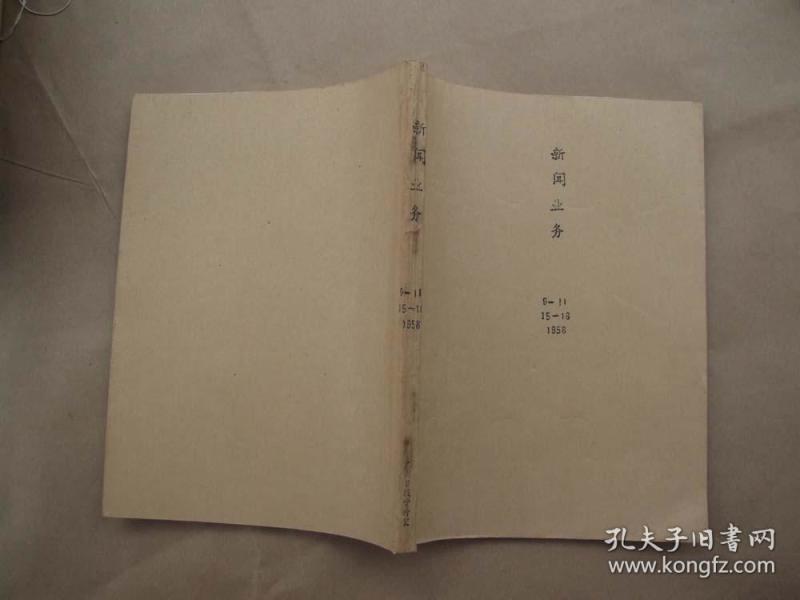 新闻业务
9-11
1958
新闻业务
9-11
15-16
1958
孔夫子旧書网
www.kongfz.com